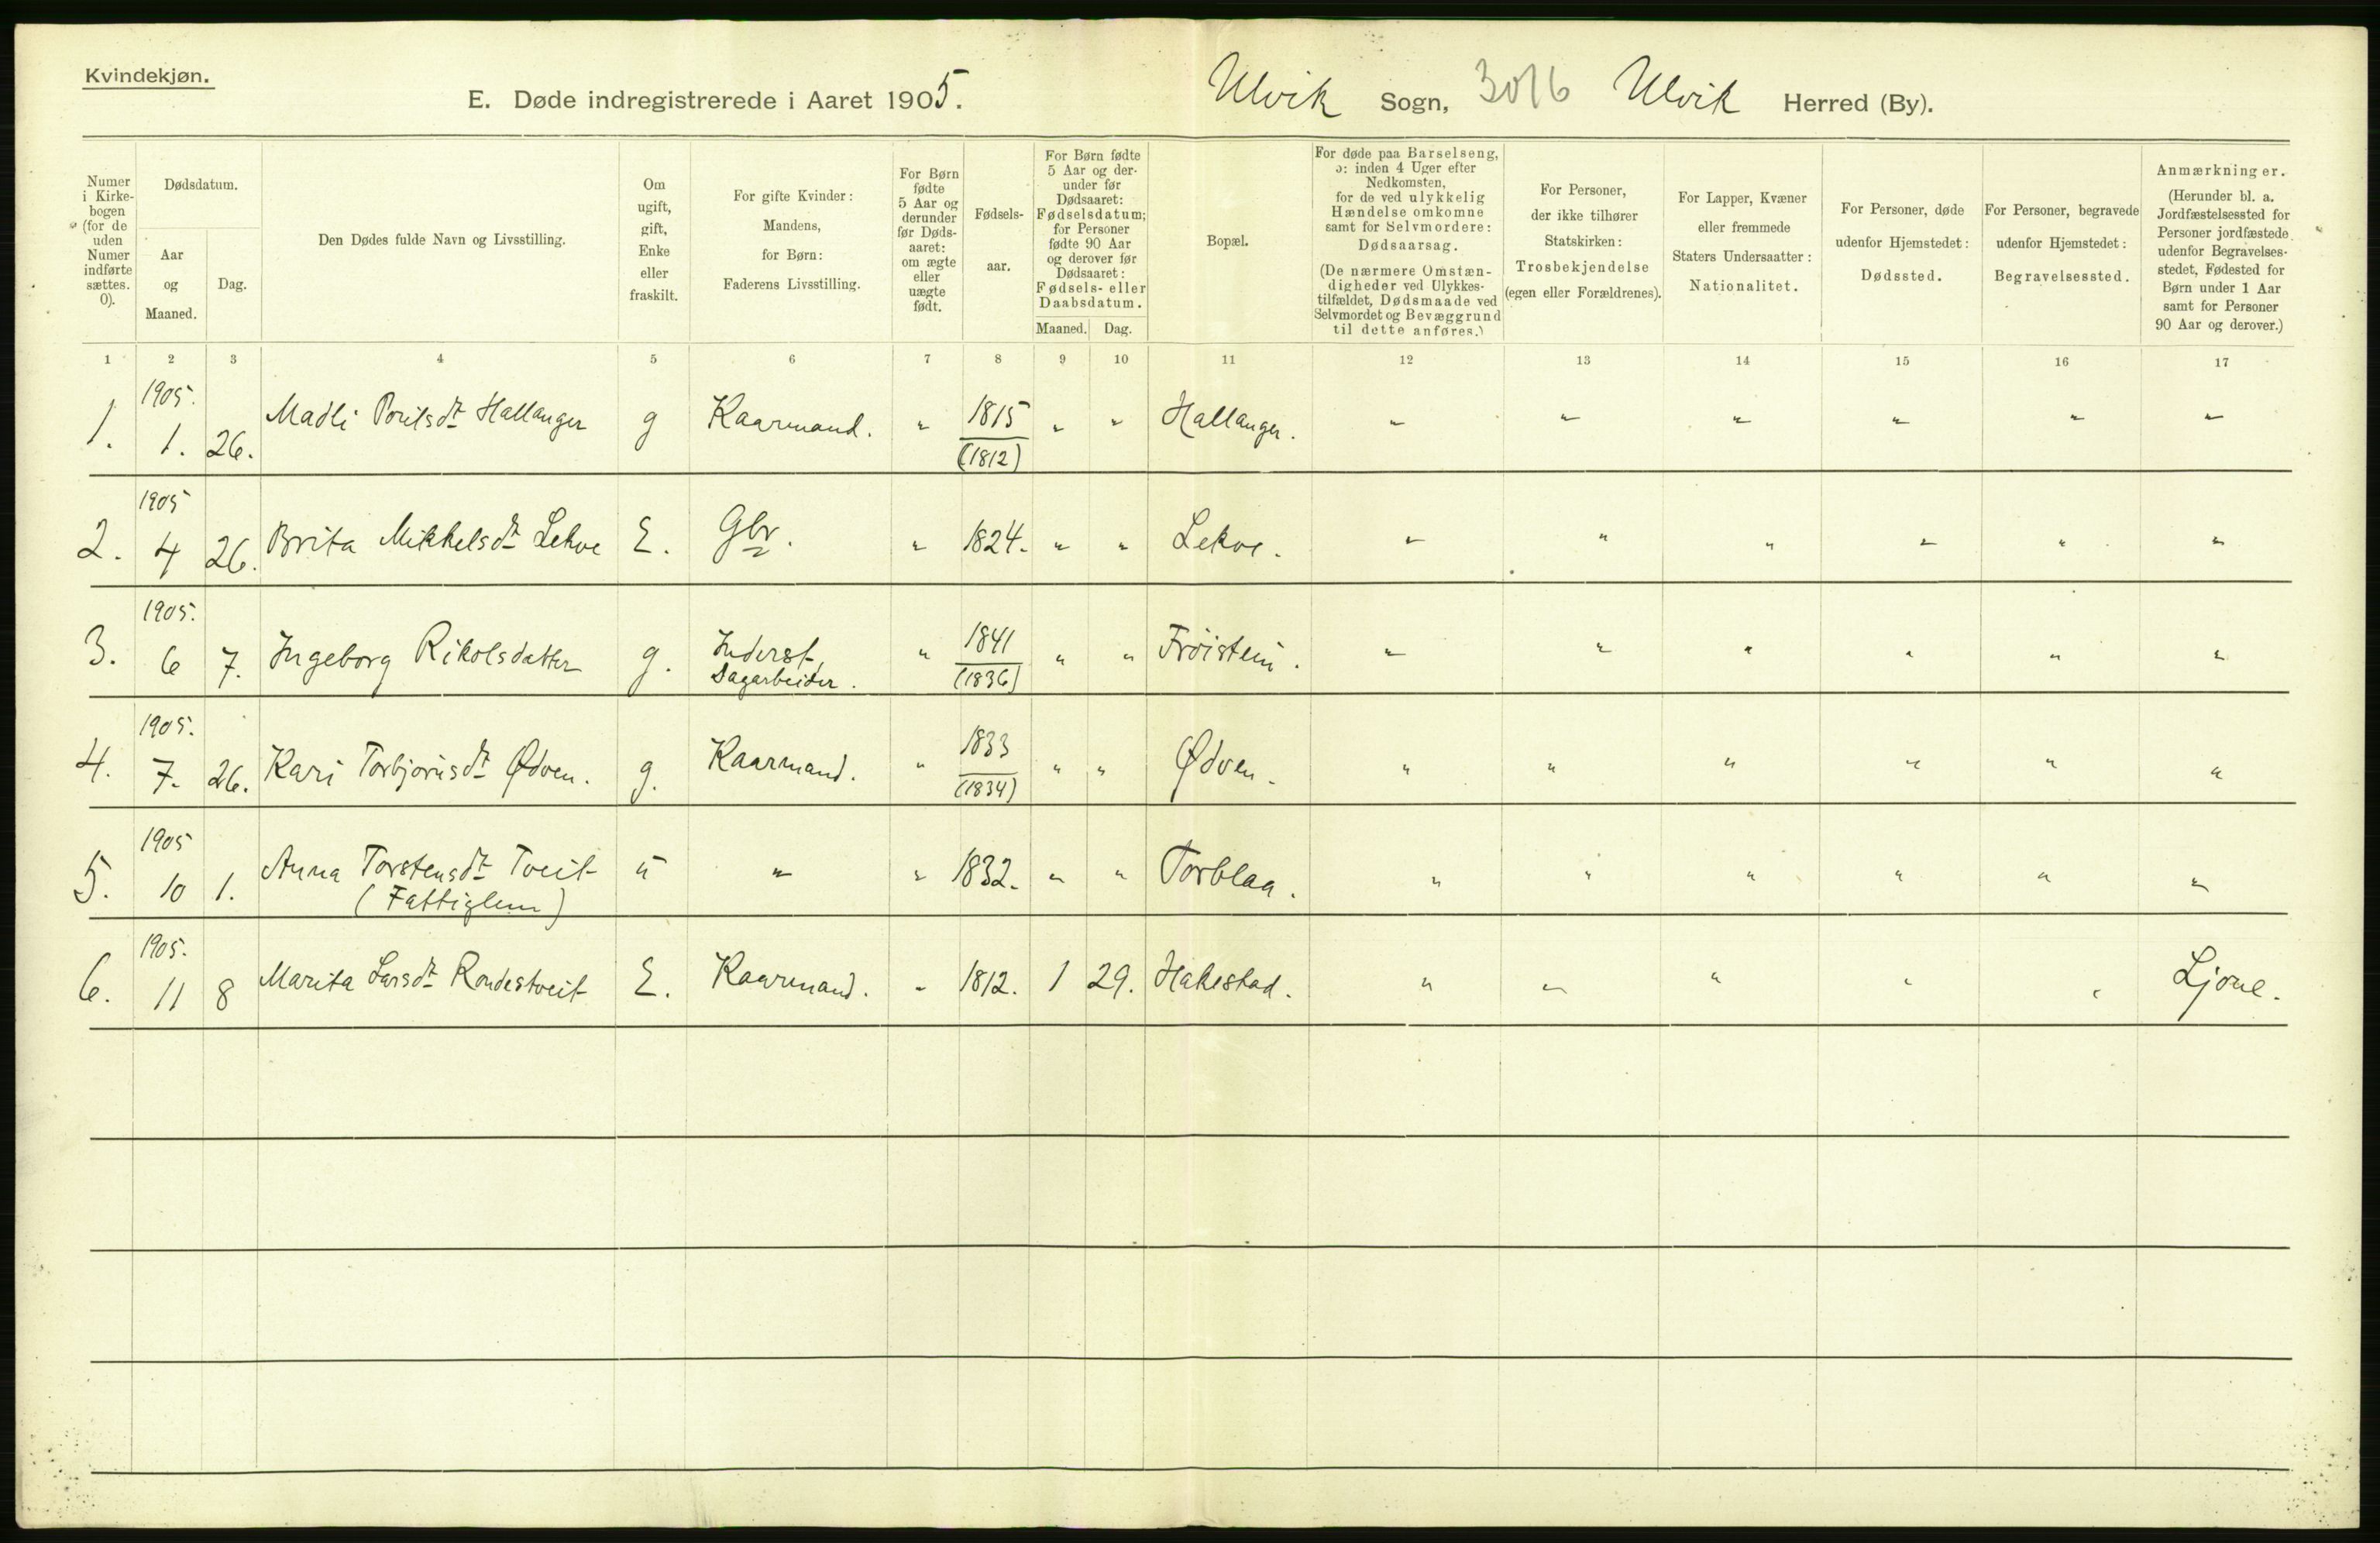 Kvindekjøn.
E. Døde indregistrerede i Aaret 1905. Ulvik Sogn, 3016 Ulvik Herred (By).
Numer i Kirke-bogen (for de uden Numer indførte sættes. 0).
Dødsdatum.
Aar og Maaned.
Dag.
Den Dødes fulde Navn og Livsstilling.
Om ugift, gift, Enke eller fraskilt.
For gifte Kvinder: Mandens, for Børn: Faderens Livsstilling.
For Børn fødte 5 Aar og derunder før Døds-aaret: om ægte eller uægte født.
Fødsels-aar.
For Børn fødte 5 Aar og der-under før Dødsaaret: Fødselsdatum; for Personer fødte 90 Aar og derover før Dødsaaret: Fødsels- eller Daabsdatum.
Maaned. Dag.
Bopæl.
For døde paa Barselseng, ɔ: inden 4 Uger efter Nedkomsten, for de ved ulykkelig Hændelse omkomne samt for Selvmordere: Dødsaarsag.
(De nærmere Omstæn-digheder ved Ulykkes-tilfældet, Dødsmaade ved Selvmordet og Bevæggrund til dette anføres.)
For Personer, der ikke tilhører Statskirken: Trosbekjendelse (egen eller Forældrenes).
For Lapper, Kvæner eller fremmede Staters Undersaatter: Nationalitet.
For Personer, døde udenfor Hjemstedet: Dødssted.
For Personer, begravede udenfor Hjemstedet: Begravelsessted.
Anmærkninger.
(Herunder bl. a. Jordfæstelsessted for Personer jordfæstede udenfor Begravelses-stedet, Fødested for Børn under 1 Aar samt for Personer 90 Aar og derover.)
1 2 3 4 5 6 7 8 9 10 11 12 13 14 15 16 17
1. 1905. 1. 26. Madli Hallanger g Kaarmand. " 1815 (1812) " " Hallanger. " " " " " "
2. 1905 4 26. Brita Mikkelsdt Lekve E. Gbr. " 1824. " " Lekve. " " " " " "
3. 1905. 6 7. Ingeborg Rikolsdatter g. Inderst, Dagarbeider. " 1841 (1836) " " Frøistein. " " " " " "
4. 1905. 7. 26. Kari Torbjørnsdt Ødven. g. Kaarmand. " 1833 (1834) " " Ødven. " " " " " "
5. 1905 10 1. Anna Torstensdt Tveit (Fattiglem) u " " 1832. " " Torblaa. " " " " " "
6. 1905. 11 8 Marita Larsdt Rondestveit E. Kaarmand. " 1812. 1 29. Hakestad. " " " " " Ljone.